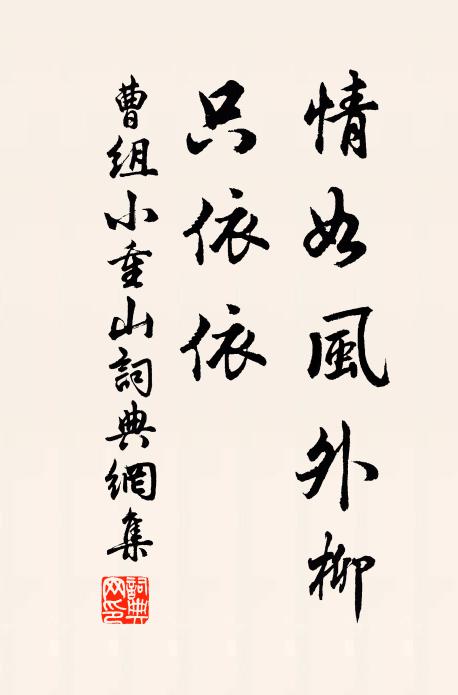 情如風外柳
只依依
曹組小重山詞典網集
詞典網印